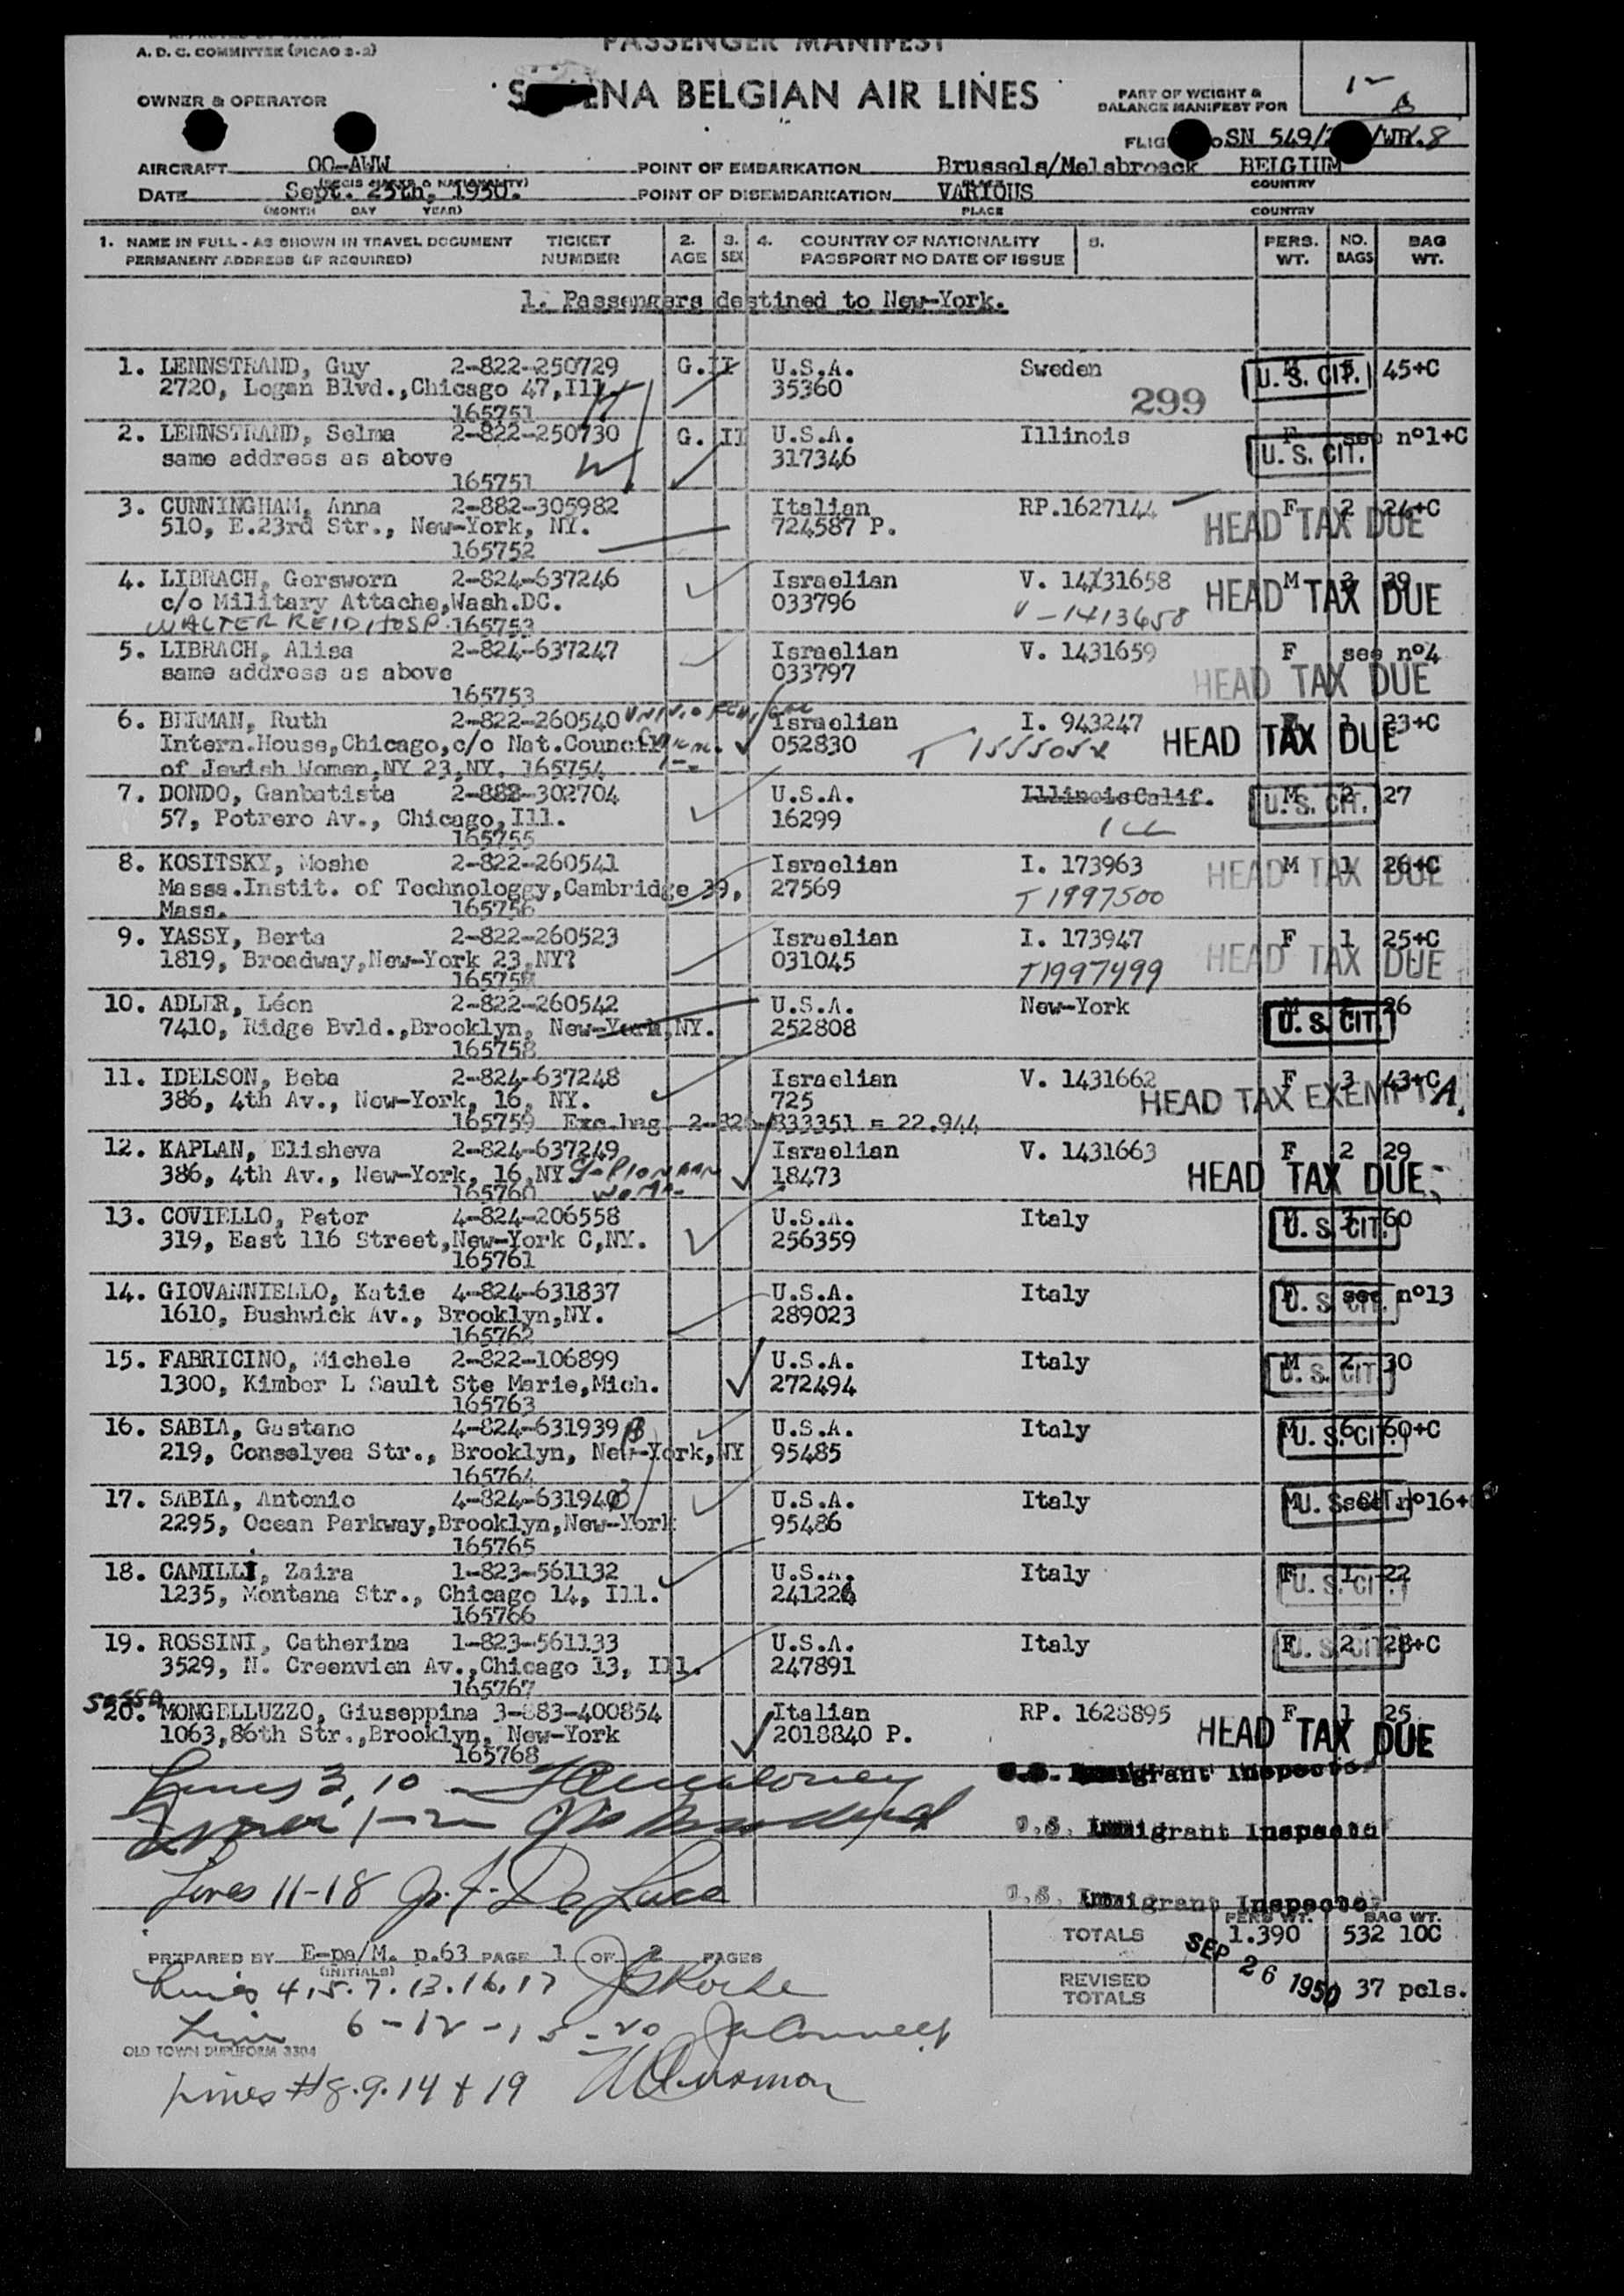 A. D. C. COMMITTEE (PICAO 3-2)
PASSENGER MANIFEST
ENA BELGIAN AIR LINES
OWNER & OPERATOR
PART OF WEIGHT &
BALANCE MANIFEST FOR
SN 549/
AIRCRAFT OO-AWW POINT OF EMBARKATION Brussels/Melsbroeck BELGIUM
(REGIS MARKS & NATIONALITY) PLACE COUNTRY
DATE Sept. 25th, 1950. POINT OF DISEMBARKATION VARIOUS
(MONTH DAY YEAR) PLACE COUNTRY
1. NAME IN FULL - AS SHOWN IN TRAVEL DOCUMENT TICKET 2. 3. 4. COUNTRY OF NATIONALITY 5. PERS. NO. BAG
PERMANENT ADDRESS (IF REQUIRED) NUMBER AGE SEX PASSPORT NO DATE OF ISSUE WT. BAGS WT.
1. Passengers destined to New-York.
1. LENNSTRAND, Guy 2-822-250729 G.II U.S.A. Sweden U. S. CIT. 45+C
2720, Logan Blvd.,Chicago 47,Ill. 35360 299
165751
2. LENNSTRAND, Selma 2-822-250730 G. II U.S.A. Illinois F see nº1+C
same address as above 317346 U. S. CIT.
165751
3. CUNNINGHAM, Anna 2-882-305982 Italian RP.1627144 F 2 24+C
510, E.23rd Str., New-York, NY. 724587 P. HEAD TAX DUE
165752
4. LIBRACH, Gersworn 2-824-637246 Israelian V. 14131658 M 2 39
c/o Military Attache,Wash.DC. 033796 V-1413658 HEAD TAX DUE
WALTER REID HOSP. 165753
5. LIBRACH, Alisa 2-824-637247 Israelian V. 1431659 F see nº4
same address as above 033797 HEAD TAX DUE
165753
6. BERMAN, Ruth 2-822-260540 Israelian I. 943247 1 23+C
Intern.House,Chicago,c/o Nat.Council 052830 T 1555052 HEAD TAX DUE
of Jewish Women,NY 23,NY. 165754
7. DONDO, Ganbatista 2-882-302704 U.S.A. Illinois Calif. M 2 27
57, Potrero Av., Chicago,Ill. 16299 Ill U. S. CIT.
165755
8. KOSITSKY, Moshe 2-822-260541 Israelian I. 173963 M 1 26+C
Massa.Instit. of Technologgy,Cambridge 39, 27569 T1997500 HEAD TAX DUE
Mass. 165756
9. YASSY, Berta 2-822-260523 Israelian I. 173947 F 1 25+C
1819, Broadway,New-York 23,NY? 031045 T1997499 HEAD TAX DUE
10. ADLER, Léon 2-822-260542 U.S.A. New-York 26
7410, Ridge Bvld.,Brooklyn, New-York,NY. 252808 U. S. CIT.
165758
11. IDELSON, Beba 2-824-637248 Israelian V. 1431662 F 3 43+C
386, 4th Av., New-York, 16, NY. 725 HEAD TAX EXEMPT A.
165759 Exc.bag. 2-826-833351 = 22.944
12. KAPLAN, Elisheva 2-824-637249 Israelian V. 1431663 F 2 29
386, 4th Av., New-York, 16,NY 18473 HEAD TAX DUE
165760
13. COVIELLO, Peter 4-824-206558 U.S.A. Italy 60
319, East 116 Street,New-York C,NY. 256359 U. S. CIT.
165761
14. GIOVANNIELLO, Katie 4-824-631837 U.S.A. Italy F see nº13
1610, Bushwick Av., Brooklyn,NY. 289023 U. S. CIT.
165762
15. FABRICINO, Michele 2-822-106899 U.S.A. Italy M 2 30
1300, Kimber L Sault Ste Marie,Mich. 272494 U. S. CIT.
165763
16. SABIA, Gustano 4-824-631939 U.S.A. Italy M 6 60+C
219, Conselyea Str., Brooklyn, New-York,NY 95485 U. S. CIT.
165764
17. SABIA, Antonio 4-824-631940 U.S.A. Italy M see nº16+
2295, Ocean Parkway,Brooklyn,New-York 95486 U. S. CIT.
165765
18. CAMILLI, Zaira 1-823-561132 U.S.A. Italy F 1 22
1235, Montana Str., Chicago 14, Ill. 241226 U. S. CIT.
165766
19. ROSSINI, Catherina 1-823-561133 U.S.A. Italy F 2 28+C
3529, N. Greenvien Av.,Chicago 13, Ill. 247891 U. S. CIT.
165767
20. MONGELLUZZO, Giuseppina 3-883-400854 Italian RP. 1628895 F 1 25
1063,86th Str.,Brooklyn, New-York 2018840 P. HEAD TAX DUE
165768
Lines 3, 10
U.S. Immigrant Inspector
U.S. Immigrant Inspector
Lines 11-18 J. F. De Luca
U.S. Immigrant Inspector
PERS WT. BAG WT.
TOTALS 1.390 532 10C
PREPARED BY E-pa/M. p.63 PAGE 1 OF 2 PAGES
(INITIALS)
SEP 26 1950
REVISED
TOTALS 37 pcls.
Lines 4.5.7.13.16.17
Line 6-12-15-20
OLD TOWN DUPLIFORM 3304
Lines #8.9.14 + 19